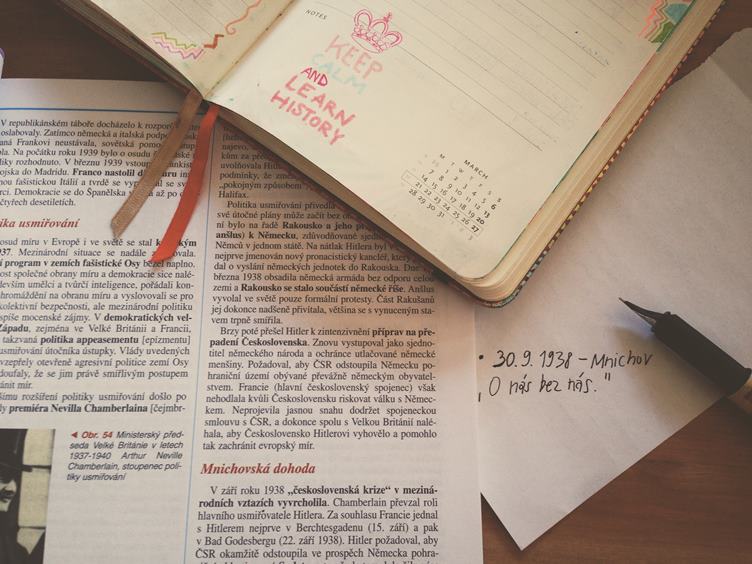 NOTES
KEEP
CALM
AND
LEARN
HISTORY
MARCH
M T W T F S S
V republikánském táboře docházelo k
oslabovaly. Zatímco německá a italská
Frankovi neustávala, sovětská pomoc
Na počátku roku 1939 bylo o osudu
rozhodnuto. V březnu 1939
do Madridu. Franco nastolil
fašistickou Itálií a tvrdě se
Demokracie se do Španělska až po
čtyřech desetiletích.
usmiřování
osud míru v Evropě i ve světě se stal
Mezinárodní situace se nadále
program v zemích fašistické Osy naplno.
společné obrany míru a demokracie
umělci a tvůrčí inteligence, pořádali
na obranu míru a vyslovovali se pro
kolektivní bezpečnosti, ale mezinárodní politiku
spíše mocenské zájmy. V demokratických vel-
Západu, zejména ve Velké Británii a Francii,
takzvaná politika appeasementu [epízmentu]
usmiřování útočníka ústupky. Vlády uvedených
otevřeně agresivní politice zemí Osy
doufaly, že se jim právě smířlivým postupem
mír.
rozšíření politiky usmiřování došlo po
premiéra Nevilla Chamberlaina [čejmbr-
◄ Obr. 54 Ministerský před-
seda Velké Británie v letech
1937-1940 Arthur Neville
Chamberlain, stoupenec poli-
tiky usmiřování
nejevilo,
kům za
uvolňovala
podmínky, že
„pokojným způsobem“
Halifax.
Politika usmiřování přivedla
své útočné plány může začít bez
ní bylo na řadě Rakousko a jeho
anšlus) k Německu, zdůvodňované
Němců v jednom státě. Na nátlak Hitlera byl
nejprve jmenován nový pronacistický kancléř, který
dal o vyslání německých jednotek do Rakouska. Dne
března 1938 obsadila německá armáda bez odporu celou
zemi a Rakousko se stalo součástí německé říše. Anšlus
vyvolal ve světě pouze formální protesty. Část Rakušanů
jej dokonce nadšeně přivítala, většina se s vynuceným sta-
vem trpně smířila.
Brzy poté přešel Hitler k zintenzivnění příprav na pře-
padení Československa. Znovu vystupoval jako sjedno-
titel německého národa a ochránce utlačované německé
menšiny. Požadoval, aby ČSR odstoupila Německu po-
hraniční území obývané převážně německým obyvatel-
stvem. Francie (hlavní československý spojenec) však
nehodlala kvůli Československu riskovat válku s Němec-
kem. Neprojevila jasnou snahu dodržet spojeneckou
smlouvu s ČSR, a dokonce spolu s Velkou Británií nalé-
hala, aby Československo Hitlerovi vyhovělo a pomohlo
tak zachránit evropský mír.
Mnichovská dohoda
V září roku 1938 „československá krize“ v meziná-
rodních vztazích vyvrcholila. Chamberlain převzal roli
hlavního usmiřovatele Hitlera. Za souhlasu Francie jednal
s Hitlerem nejprve v Berchtesgadenu (15. září) a pak
v Bad Godesbergu (22. září 1938). Hitler požadoval, aby
ČSR okamžitě odstoupila ve prospěch Německa pohra-
• 30.9.1938 – Mnichov
„O nás bez nás."